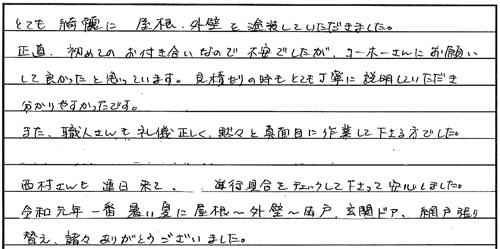 とても綺麗に屋根、外壁を塗装していただきました。
正直、初めてのお付き合いなので不安でしたが、ユーホーさんにお願い
して良かったと思っています。見積せりの時もとても丁寧に説明していただき
分かりやすかったです。
また、職人さんも礼儀正しく、黙々と真面目に作業して下さる方でした。
西村さんも連日来て、進行具合をチェックして下さって安心しました。
令和元年一番暑い夏に屋根～外壁～雨戸、玄関ドア、網戸張り
替え、諸々ありがとうございました。